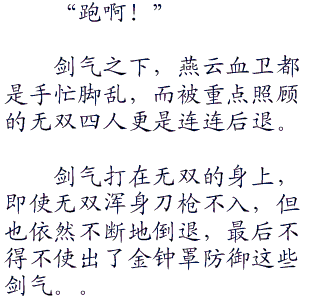 “跑啊！”
剑气之下，燕云血卫都
是手忙脚乱，而被重点照顾
的无双四人更是连连后退。
剑气打在无双的身上，
即使无双浑身刀枪不入，但
也依然不断地倒退，最后不
得不使出了金钟罩防御这些
剑气。。